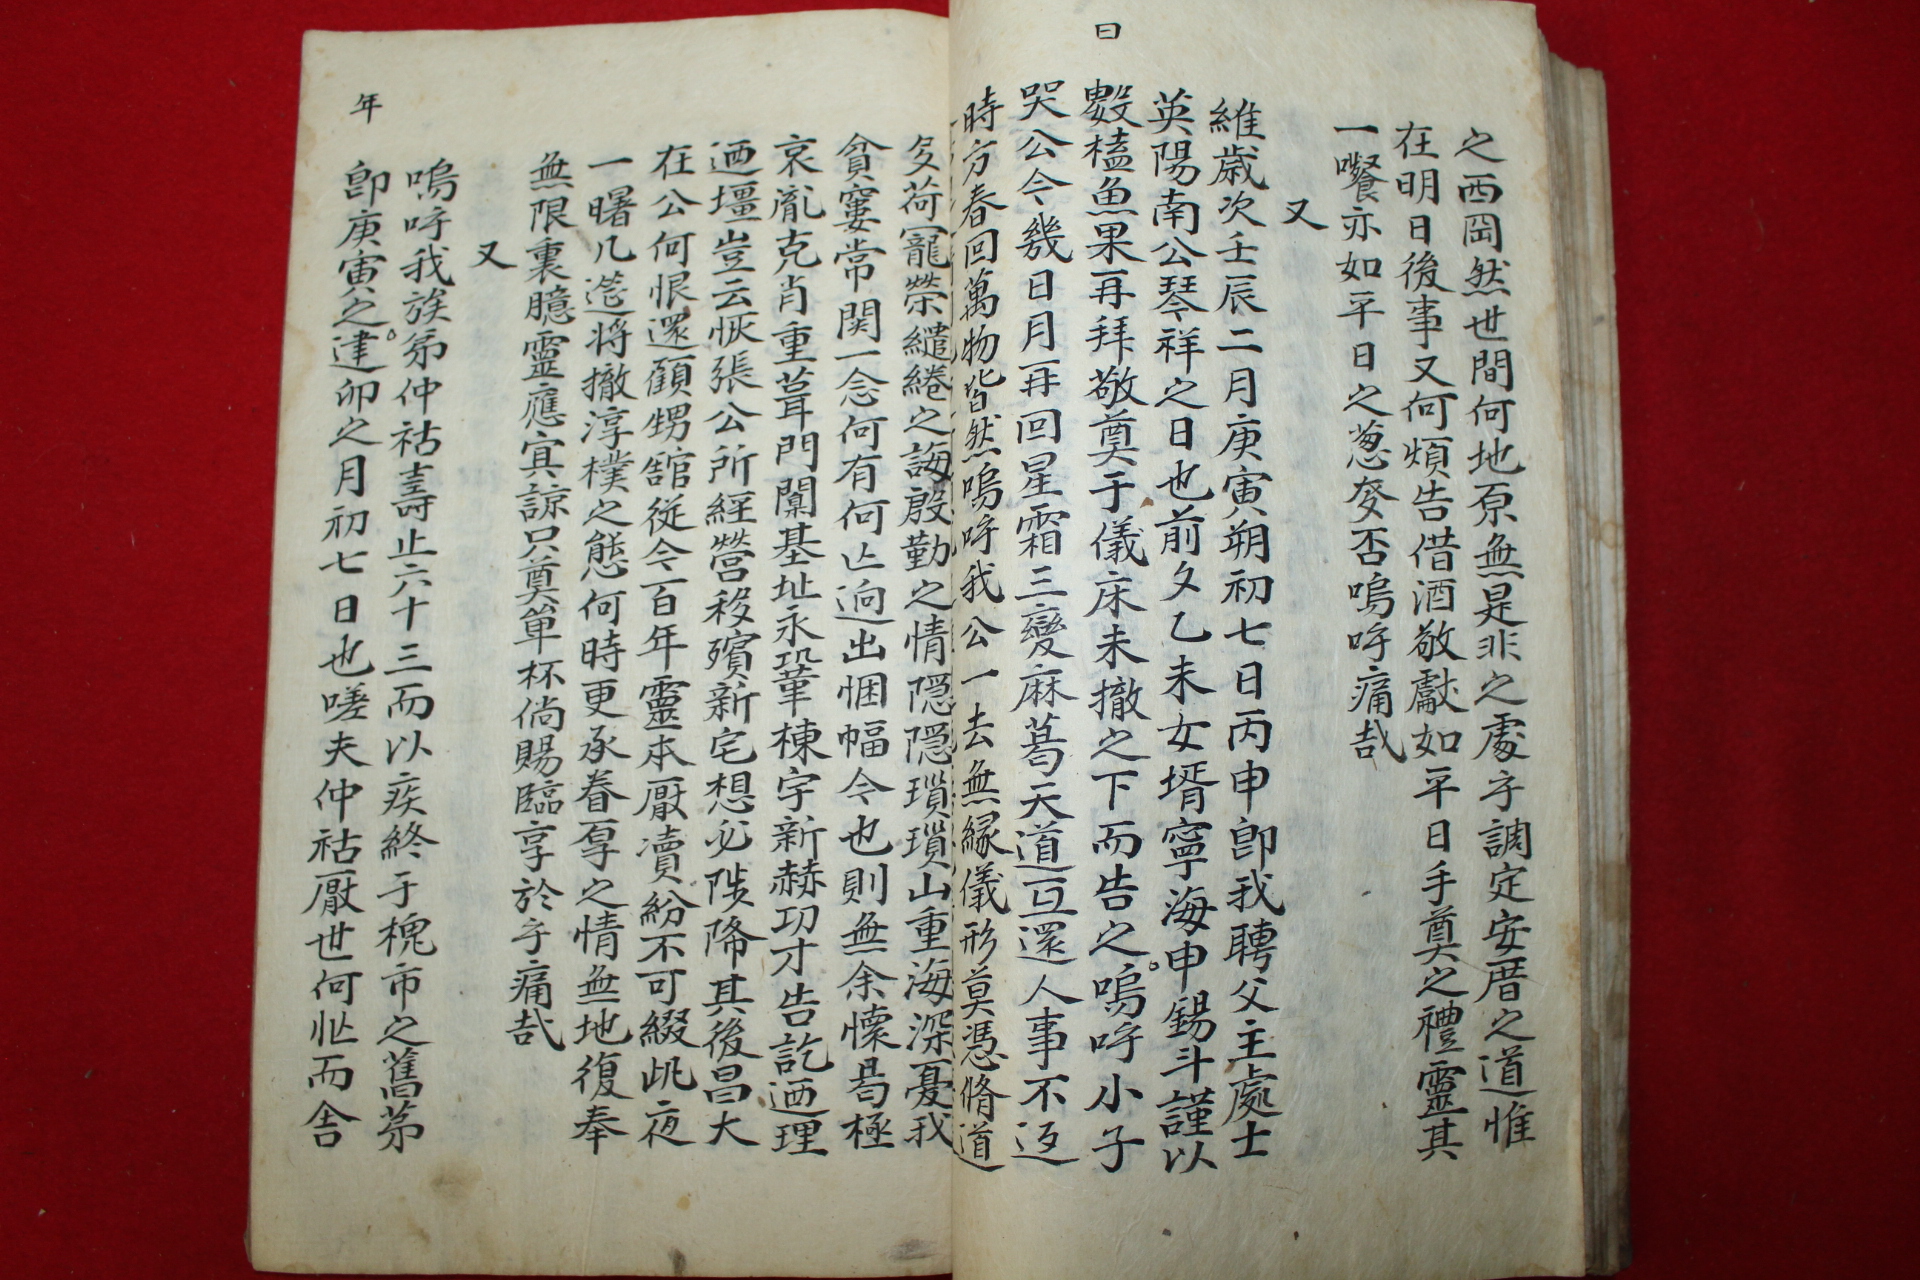 之西岡然世間何地原無是非之處乎調定安厝之道惟
在明日後事又何煩告借酒敬獻如平日手奠之禮靈其
一嚬亦如平日之葱麥否嗚呼痛哉
又
維歲次壬辰二月庚寅朔初七日丙申卽我聘父主處士
英陽南公琴祥之日也前夕乙未女壻寧海申錫斗謹以
數榼魚果再拜敬奠于儀床未撤之下而告之嗚呼小子
曰
哭公今幾日月再回星霜三變麻葛天道亘還人事不返
時方春回萬物皆然嗚呼我公一去無緣儀形莫憑脩道
夂荷寵榮繾綣之誨殷勤之情隱隱瑣瑣山重海深憂我
貧窶常関一念何有何亡逈出悃幅今也則無余懷曷極
哀胤克肖重葺門闑基址永鞏棟宇新赫功才告訖迺理
迺壃豈云恢張公所經營移殯新宅想必陟降其後昌大
在公何恨還顧甥舘從今百年靈本厭瀆紛不可綴此夜
一曙几筵將撤淳樸之態何時更承眷厚之情無地復奉
無限裏臆靈應寘諒只奠單杯倘賜臨享於乎痛哉
又
嗚呼我族弟仲祜壽止六十三而以疾終于槐市之舊茅
卽庚寅之建卯之月初七日也嗟夫仲祜厭世何忙而舍
年